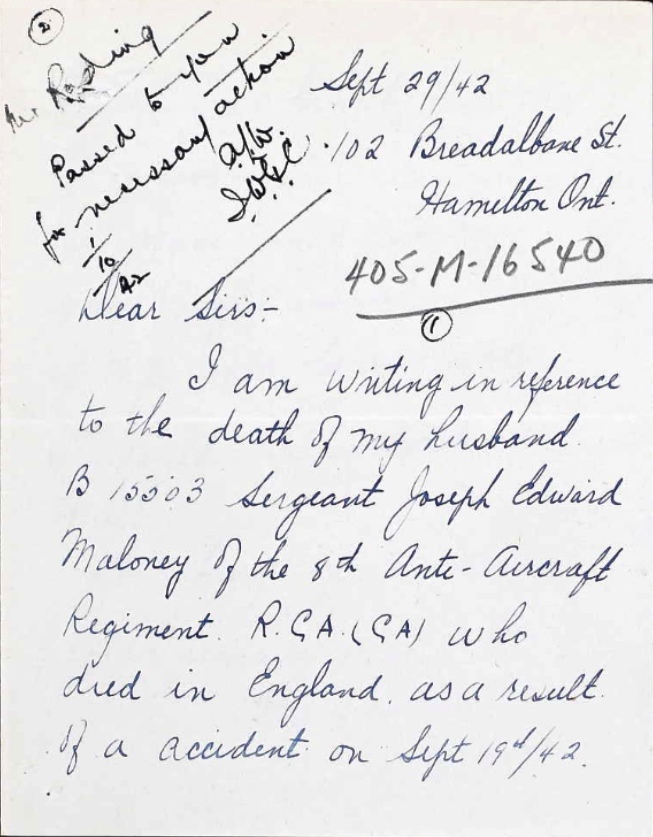 2
Passed to you
for necessary action
1/10
42
Sept 29/42
102 Breadalbane St.
Hamelton Ont.
405-M-16540
1
Dear Sirs:-
I am writing in reference
to the death of my husband
B 15503 Sergeant Joseph Edward
Maloney of the 8th Anti-Aircraft
Regiment. R.C.A. (C.A) who
died in England. as a result.
of a accident on Sept 19th/42.